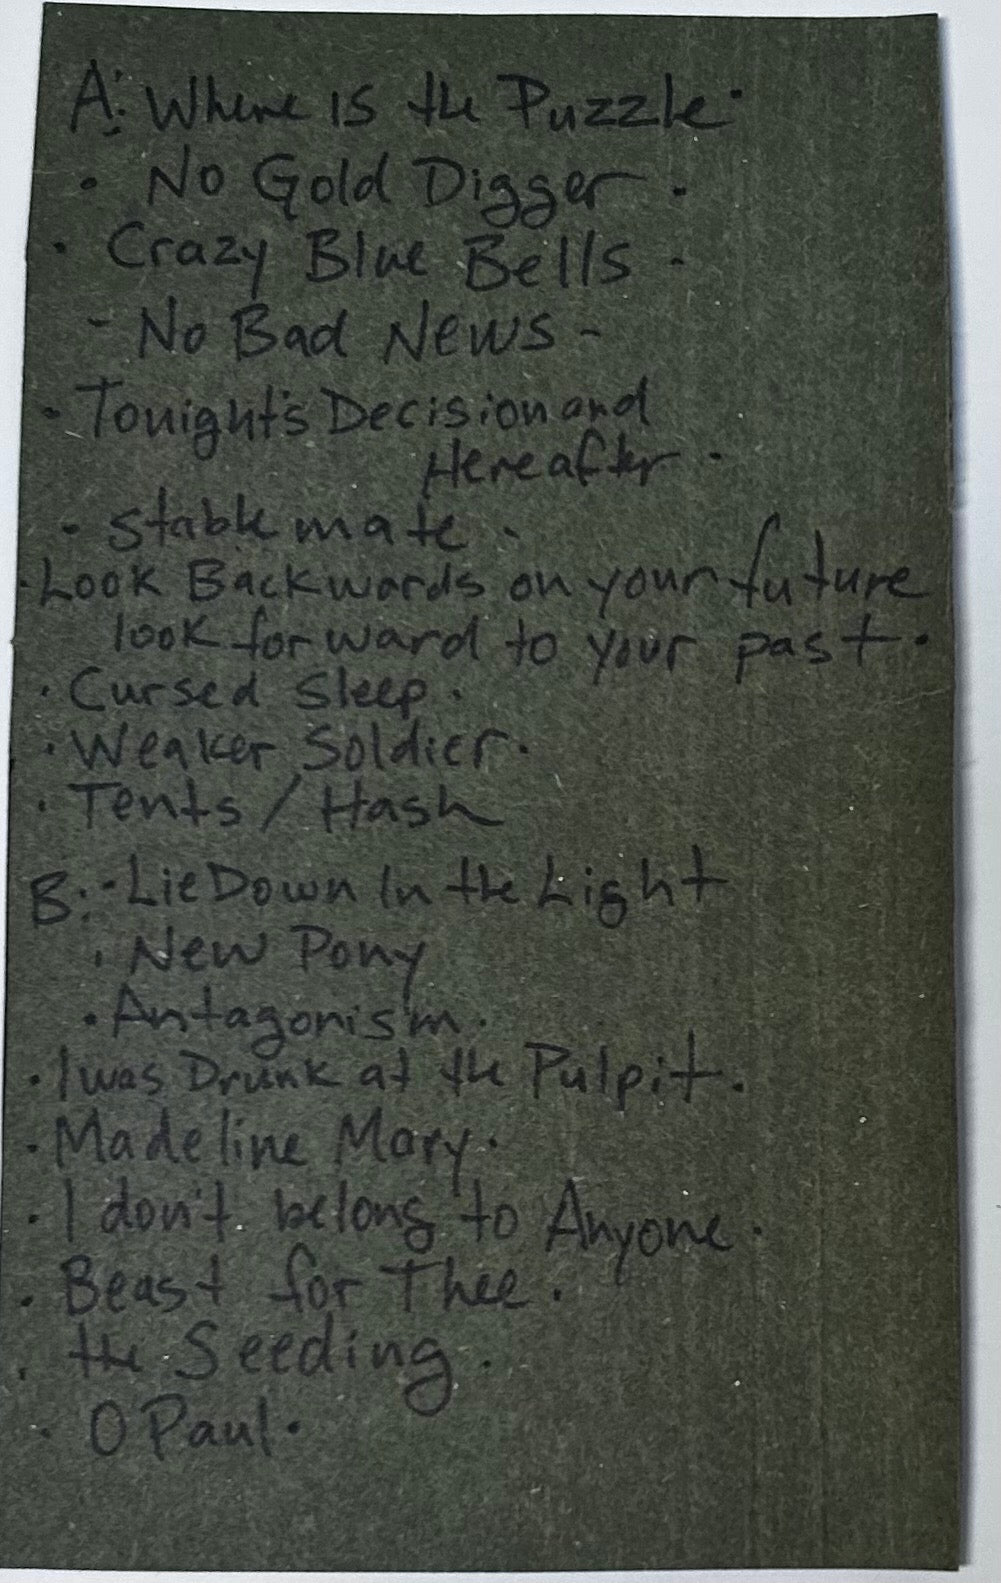 A: Where is the Puzzle·
· No Gold Digger ·
· Crazy Blue Bells ·
- No Bad News -
· Tonight's Decision and
Hereafter ·
· Stablemate ·
· Look Backwards on your future
look forward to your past ·
· Cursed Sleep ·
· Weaker Soldier ·
· Tents / Hash
B: · Lie Down In the Light
· New Pony
· Antagonism ·
· I was Drunk at the Pulpit ·
· Madeline Mary ·
· I don't belong to Anyone ·
· Beast for Thee ·
· the Seeding ·
· O Paul ·